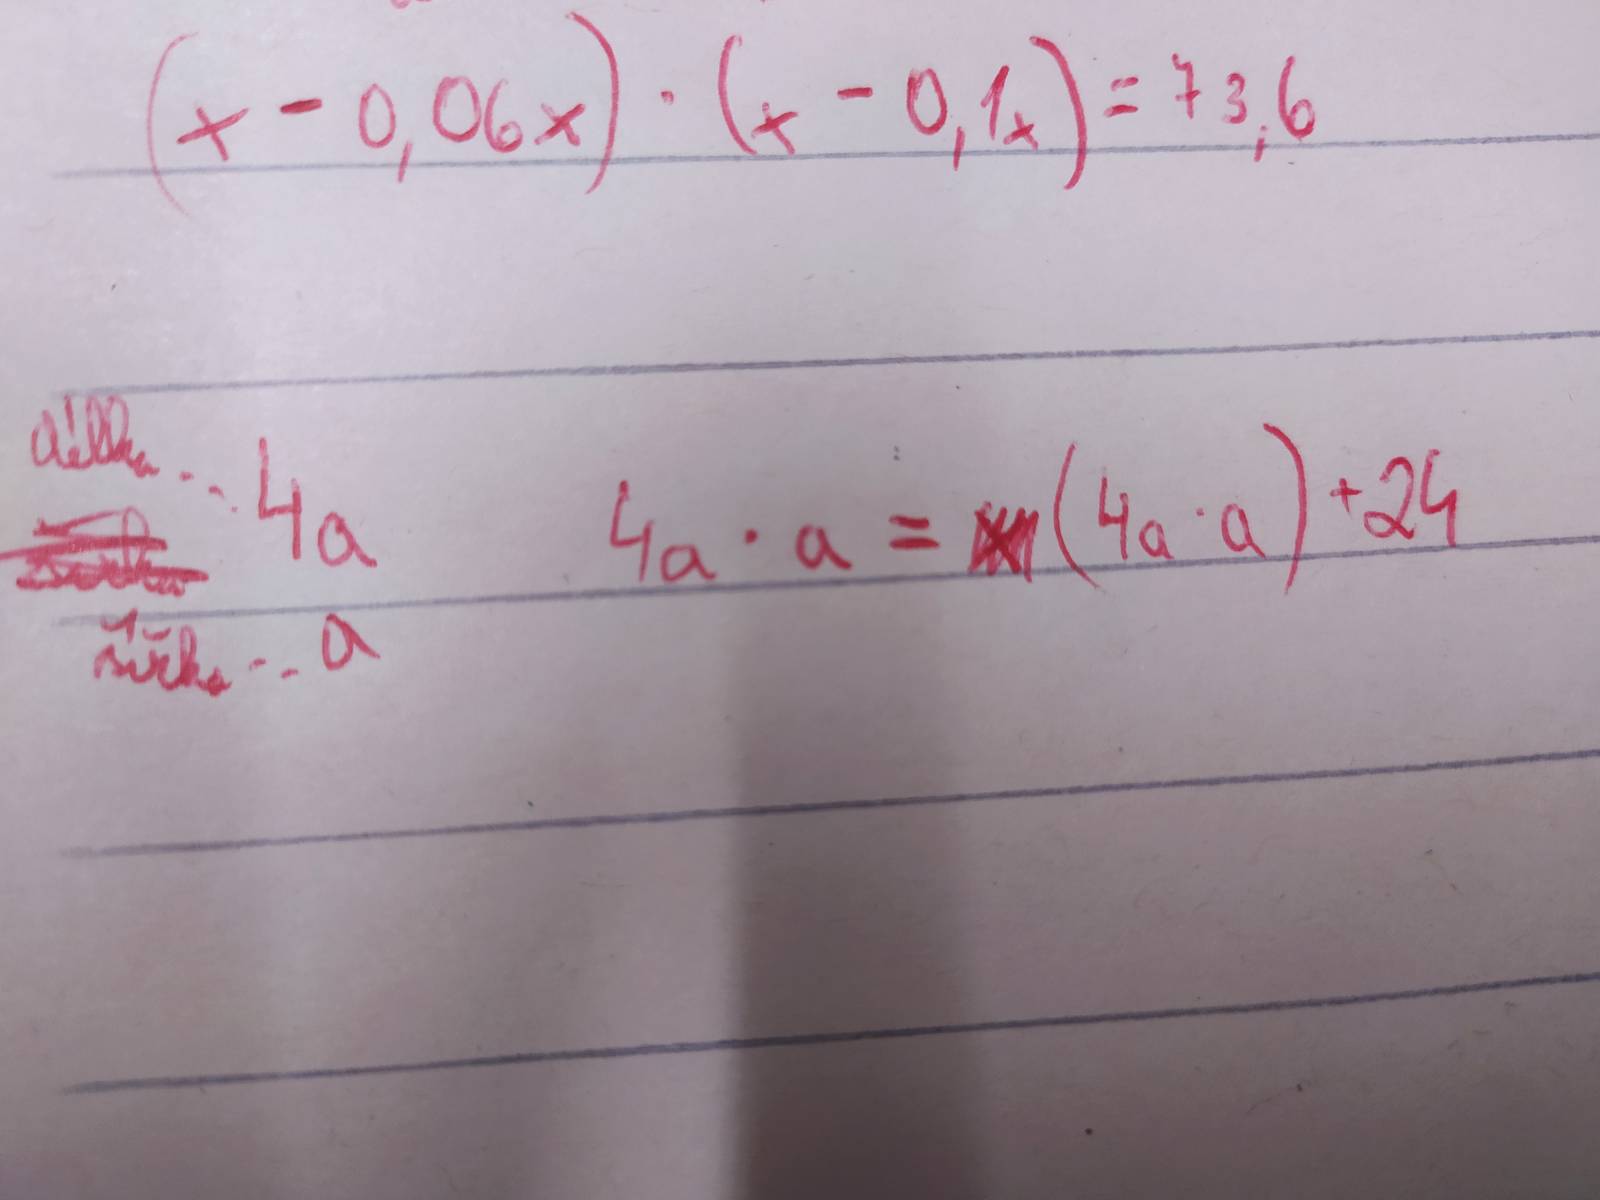 (x - 0,06x) · (x - 0,1x) = 73,6
délka .. 4a
4a · a = (4a · a) + 24
šířka .. a